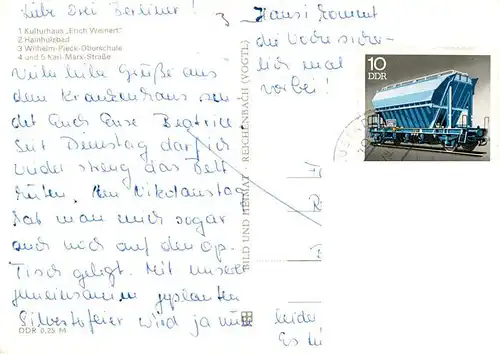 Liebe Drei Berliner!
1 Kulturhaus „Erich Weinert"
2 Hainholzbad
3 Wilhelm-Pieck-Oberschule
4 und 5 Karl-Marx-Straße
Viele liebe Grüße aus
dem Krankenhaus sen-
det Euch Eure Beatrice
Seit Dienstag darf ich
wieder streng das Bett
hüten. Am Nikolaustag
hat man mich sogar
auch noch auf den Op-
Tisch gelegt. Mit unserer
gemeinsamen geplanten
Silvesterfeier wird ja nun
DDR 0,25 M
BILD UND HEIMAT · REICHENBACH (VOGTL)
leider
Es
3
Hansi kommt
die Woche sicher-
lich mal
vorbei!
10
DDR